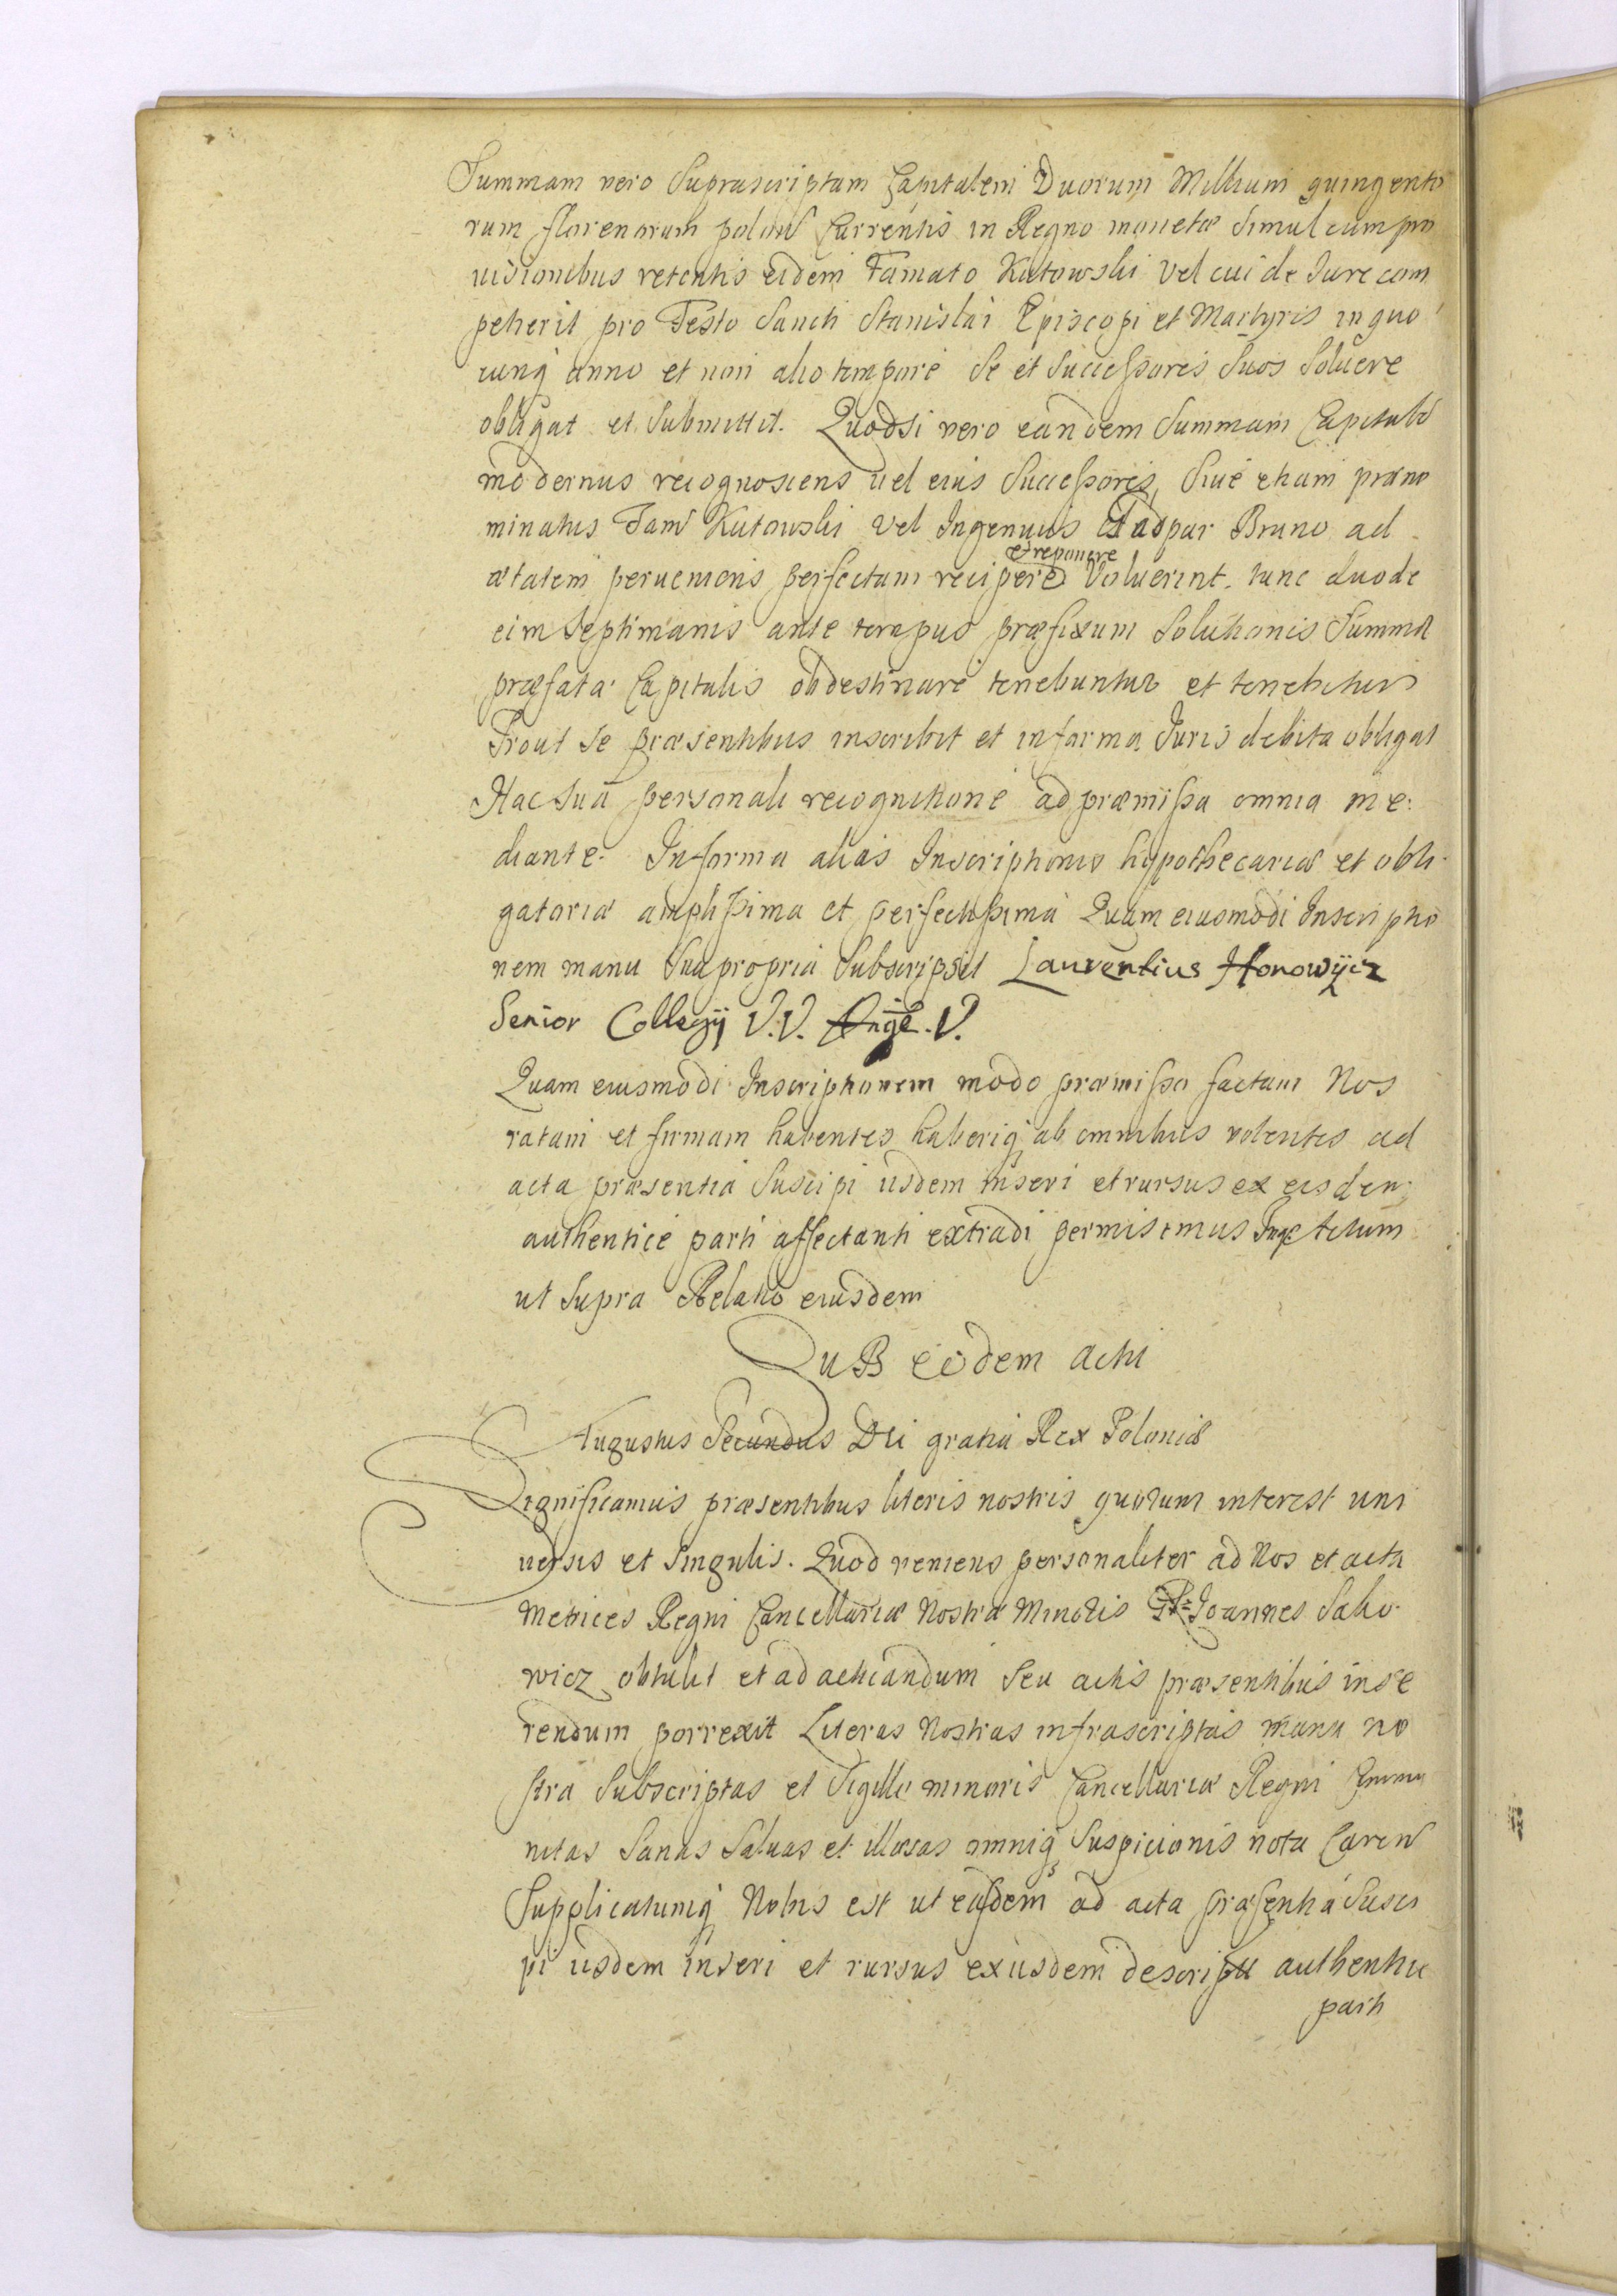 Summam vero Suprascriptam Capitalem Duorum Millium quingento
rum florenorum polon Currentis in Regno moneta Simul cum pro
uisionibus retentis eidem Famato Kutowski vel cui de Jure com
petierit pro Festo Sancti Stanislai Episcopi et Martyris in quo
cunq anno et non alio tempore Se et Successores Suos Soluere
obligat et Submittit. Quodsi vero eandem Summam Capitale
modernus recognoscens uel eius Successores, Siue etiam præno
minatus Fam Kutowski vel Ingenuus Caspar Bruno ad
ætatem perueniens perfectam recipere et reponere Voluerint. tunc duode
cim Septimanis ante tempus præfixum Solutionis Summa
præfata Capitalis obdestinare tenebuntur et tenebitur
Prout Se præsentibus inscribit et in forma Juris debita obligat
Hac Sua personali recognitione ad præmissa omnia me:
diante. In forma alias Inscriptionis hypothecariæ et obli
gatoriæ amplissima et perfectissima Quam eiusmodi Inscriptio
nem manu Sua propria Subscripsit Laurentius Honowijcz
Senior Collegij V.V. V.
Quam eiusmodi Inscriptionem modo præmisso factam Nos
ratam et firmam habentes haberiq ab omnibus volentes ad
acta præsentia Suscipi iisdem inseri et rursus ex eisdem
authentice parti affectanti extradi permisimus Actum
ut Supra Relatio eiusdem
SuB eodem Actu
Augustus Secundus Dei gratia Rex Poloniæ
Significamus præsentibus literis nostris quorum interest uni
uersis et Singulis. Quod veniens personaliter ad Nos et acta
Metrices Regni Cancellariæ Nostræ Minoris Joannes Saho
wicz obtulit et ad acticandum Seu actis præsentibus inse
rendum porrexit Literas Nostras infrascriptas manu no
stra Subscriptas et Sigillo minoris Cancellariæ Regni Commu
nitas Sanas Saluas et illæsas omniq Suspicionis nota Caren
Supplicatumq Nobis est ut easdem ad acta præsentia Susci
pi iisdem inseri et rursus ex iisdem descripti authentice
parti